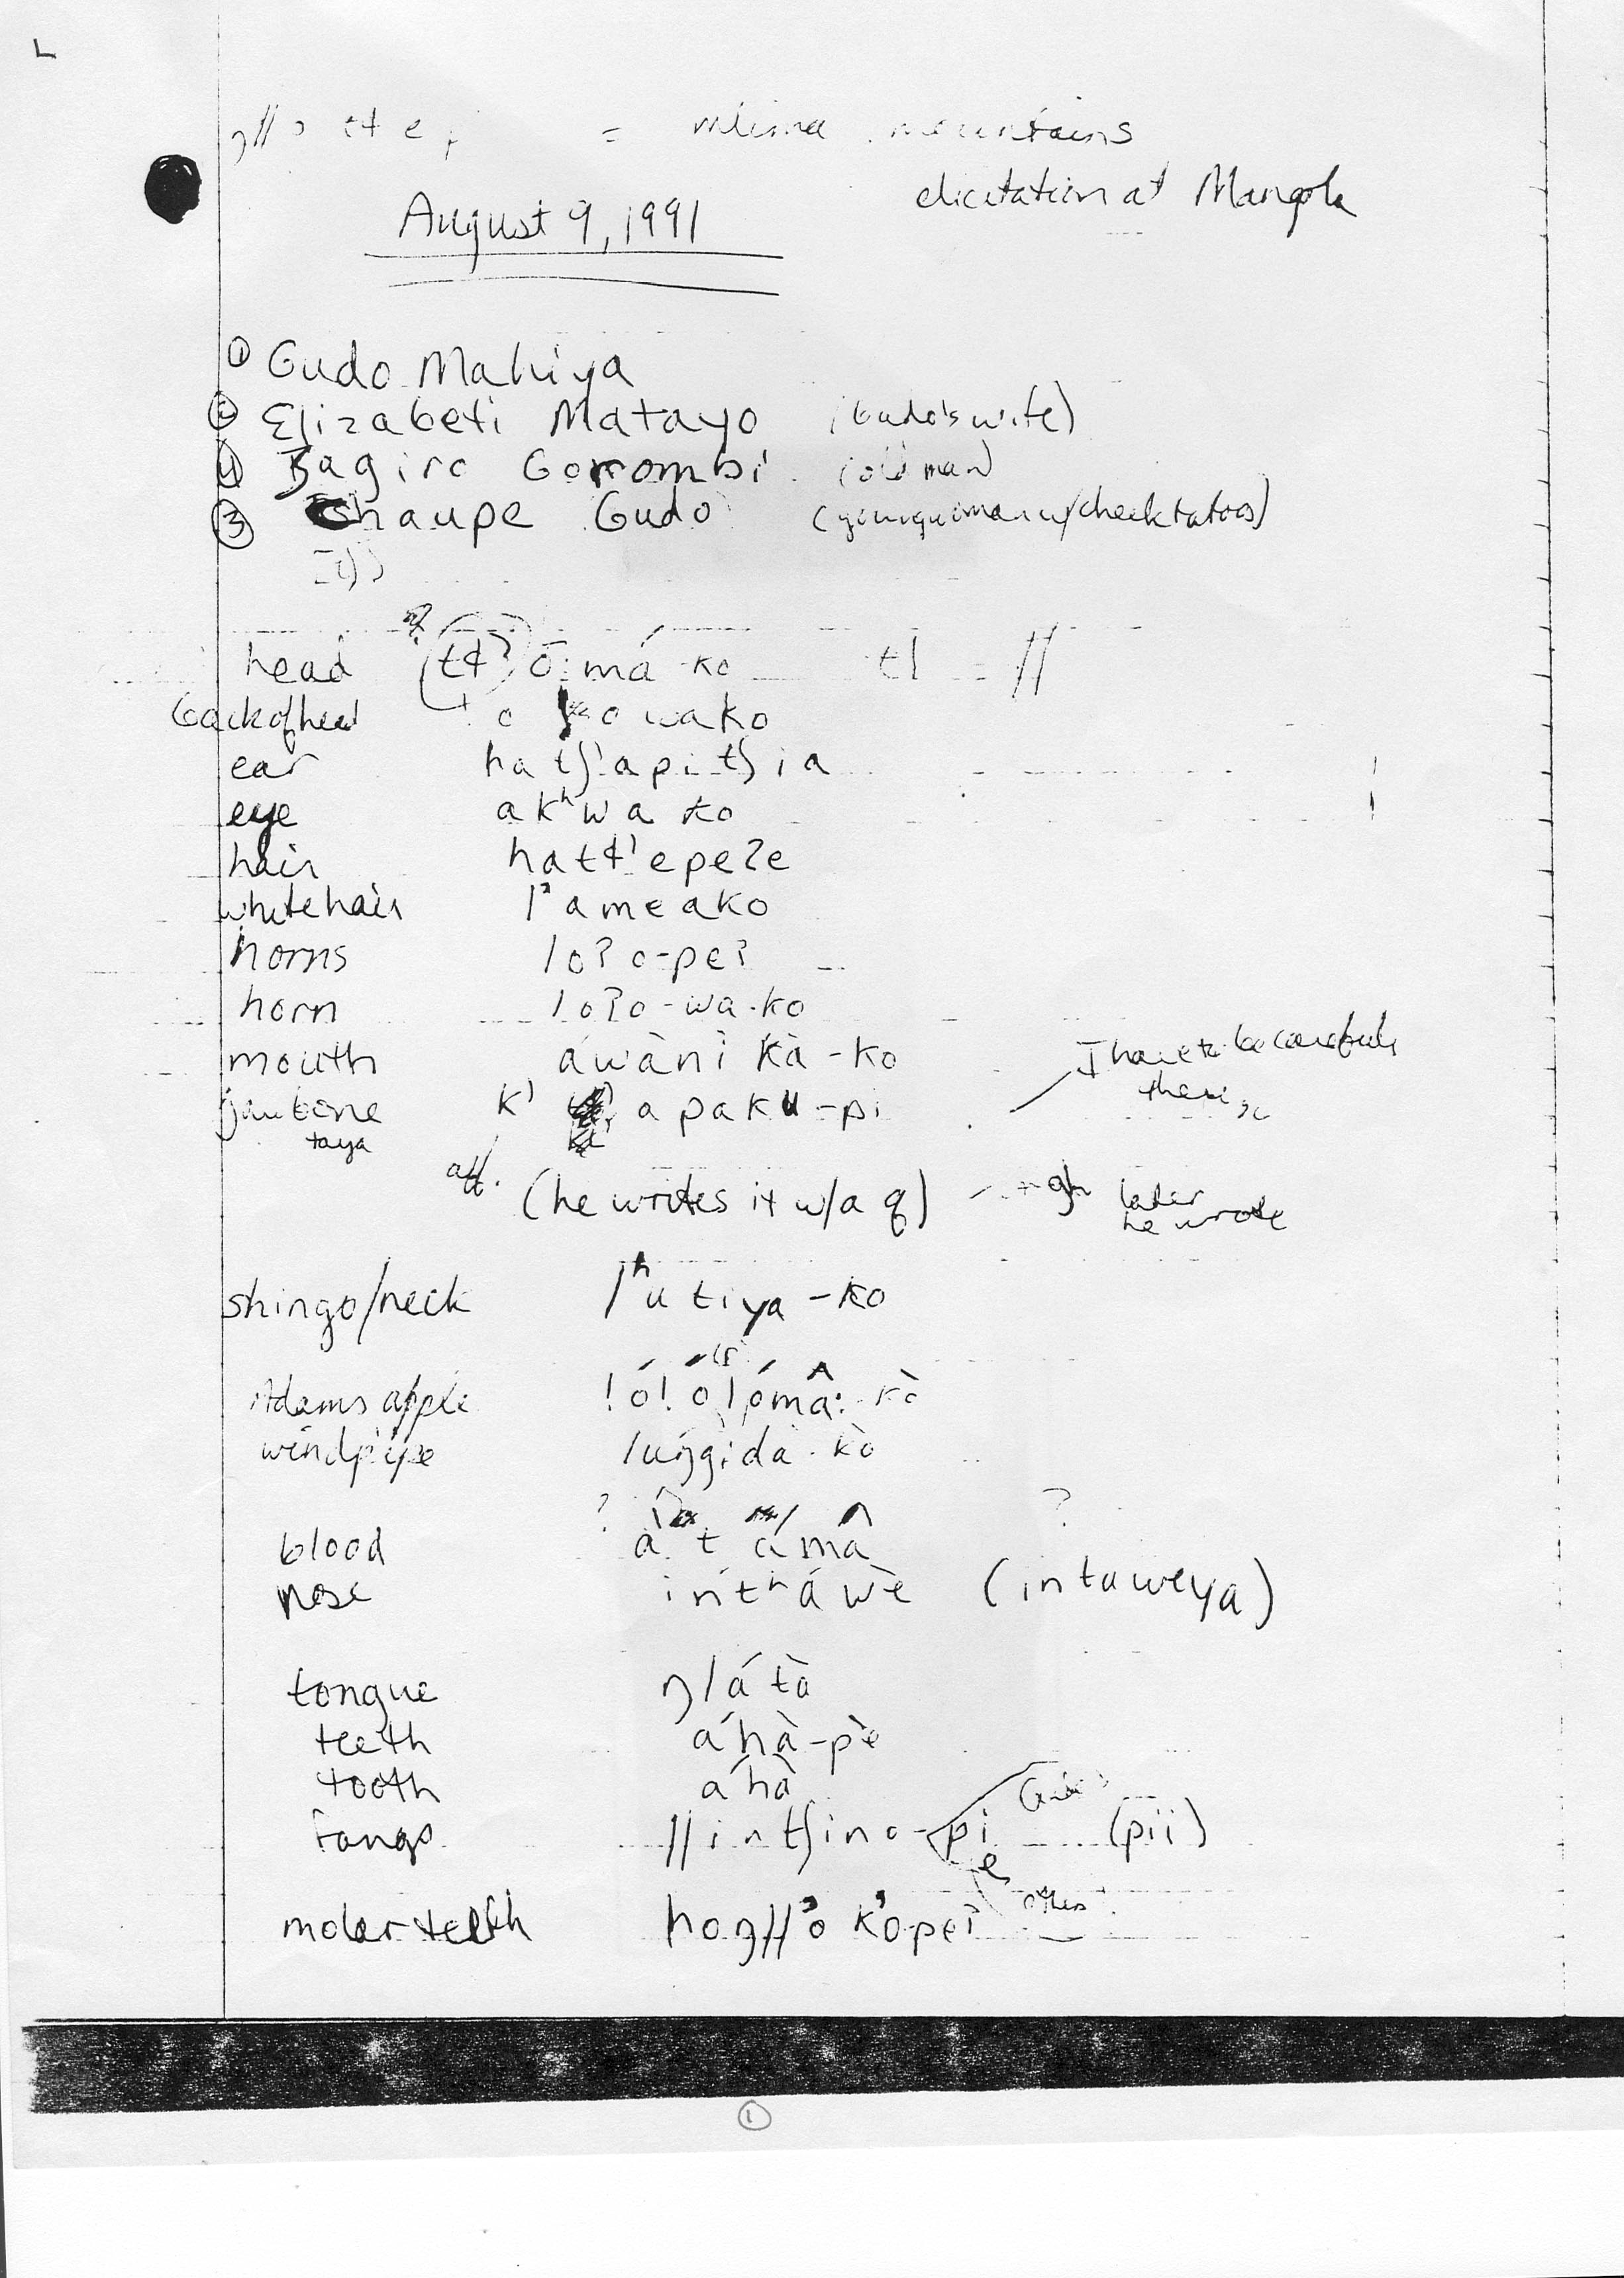 ŋ//o tɬ e = mlima mountains
elicitation at Mangola
August 9, 1991
① Gudo Mahiya
② Elizabeti Matayo (Gudo's wife)
④ Bagiro Gorrombi (old man)
③ Chaupe Gudo (young man w/cheek tatoos)
head (tɬ') ō: má-ko tl = //
back of head o kowako
ear hatʃ'apitʃia
eye akʰwa ko
hair hatɬ'epeʔe
white hair /ˀameako
horns /oʔo-peʔ
horn /oʔo-wa-ko
mouth áwànì kà-ko I have to be careful
jawbone k' apaku-pi
taya
aff. (he writes it w/a q) gh later he wrote
shingo/neck /ʰutiya-ko
Adams apple !ó!ó!ómâ:-kò
windpipe /uŋgida-kò
? ?
blood átámâ
nose intʰáwè (intaweya)
tongue ŋ/átà
teeth áhà-pè
tooth áhà
fangs //intʃino-pi (pii)
e
other
molar teeth hoŋ//ˀo k'opeʔ
①